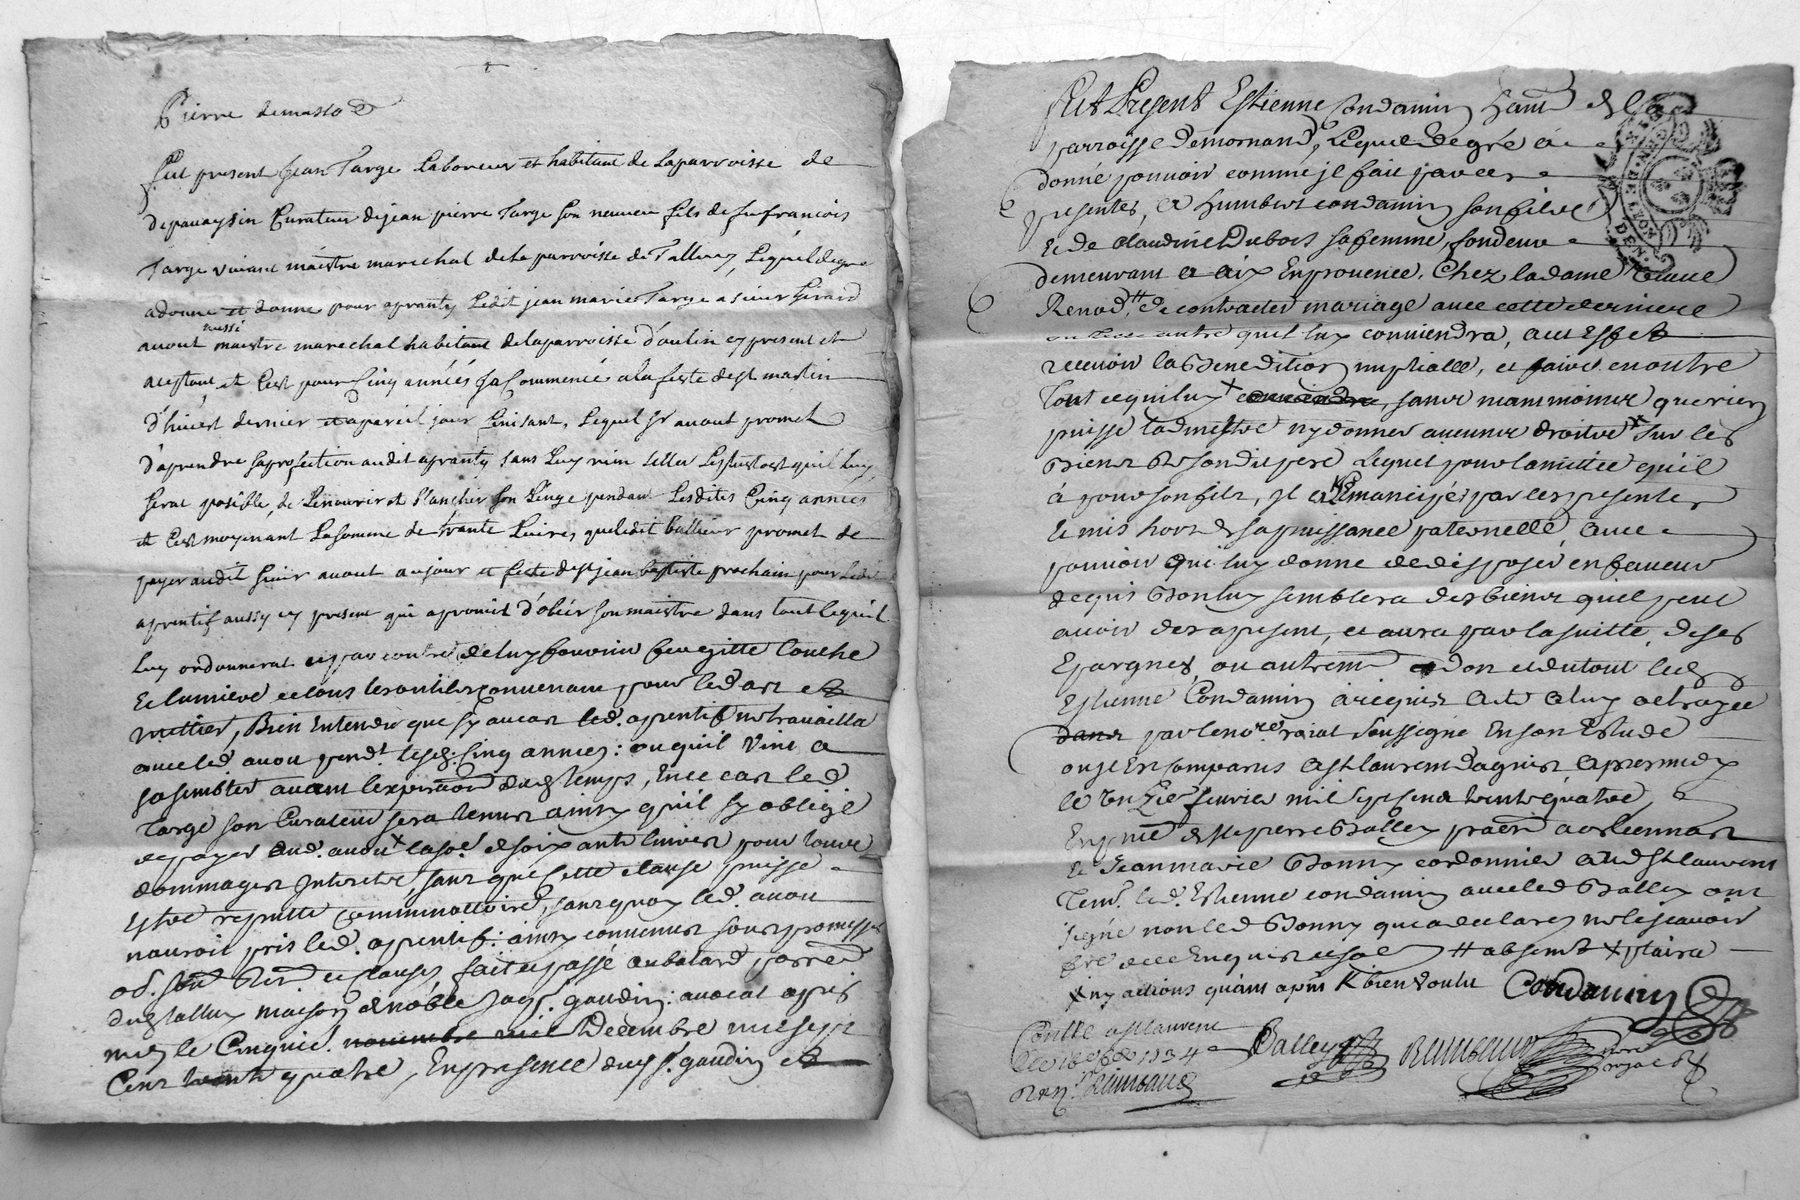 Pierre demasso
fut present Jean Targe Laboreur et habitant de Laparroisse de
depavaysin Curateur dejean pierre Targe son neuveu fils de feu francois
Targe vivant maistre marechal dela parroisse de Talluy, Lequel degre
adonne et donne pour apranty Ledit jean marie Targe a sieur Gerard
aussi
avout maistre marechal habitant delaparroisse d'oulin cy present et
aceptant, et C'est pour Cinq années Ja Commencé ala feste de st martin
d'hivert dernier et apareil jour finisant, Lequel sr avout promet
d'aprendre saprofection audit apranty sans Luy rien seller Lestust quil luy
serat posible, de Lenourir et blanchir son Linge pendant Lesdites Cinq années
et C'est moyenant La somme de trante Livres, queledit promet de
payer audit sieur avout aujour et feste de st jean baptiste prochain pour ledit
aprentif aussy cy present qui apromis d'obéir son maistre dans tout lequ'il
luy ordonnerat et par contre de luy fournir feu gitte Couche
Et lumiere et tous les outils Convenant pour led art et
mettier, Bien Entendu que sy aucas led. aprentif ne travailla
avec led avou pendt. lesd. Cinq années: ou quil vint a
sabsenter avant lexpiration dud temps, En ce cas led
Targe son Curateur sera tenu ainsy qu'il sy oblige
depayer aud. avou x la so.e de soixante livres pour toutte
dommages Interets, sans que Cette clause puisse
Estre reputté Comminattoire, sans quoy led. avou
nauroit pris led. aprentif: ainsy convenu sous promesses
ob. et clauses fait et passé aubatard parroisse
dud talluy maison de noble Jacq. gaudin: avocat apres
midy le Cinquie. novembre mil Decembre mil sept
Cent trente quatre, En presence dud sr. gaudin et
fut Present Estienne Condamin habt de la
parroisse demornand, Lequel de gré à
donné pouvoir comme jl fait par ces
presentes, a humbert condamin son fils
& de claudine Dubois sa femme, fondeur
demeurant a aix En provence. Chez la dame veuve
Renod, # de contracter mariage avec cette derniere
ou tete autre quil luy conviendra, aus Effet
recevoir la Benediction nuptialle, et faire en outre
Tout cequil luy x conviendra, sans neanmoins que rien
puisse ladmestre ny donner aucune droiture x sur les
Biens de son dit pere Lequel pour lamittié qu'il
à pour son fils, jl a K Emancipé par ces presentes
& mis hors de sa puissance paternelle, avec
pouvoir qui luy donne de disposer en faveur
de qui Bon luy semblera des biens quil peut
avoir des apresent, et aura par la suitte, de ses
Epargnes, ou autrement dont et du tout led
Estienne Condamin à requis acte a luy octroyée
dans par le nore. royal soussigné En son Estude
ou jl Est Comparus a st laurent dagnis, apres midy
le onzie. fevrier mil sept cent trente quatre,
En pnce de sr pierre Balley praen a orliennas
& Jean marie Bonny cordonnier aud st laurent
Tem. led. Estienne condamin avec led Balley ont
signé non led Bonny que a declarer ne le scavoir
fre. de ce Enquis et so. # absent x plaira
x ny actions quand apnt K bien voulu Condamin
Contle a st laurent
Le 1734
Balley Rambaud nore royal
Rambaud